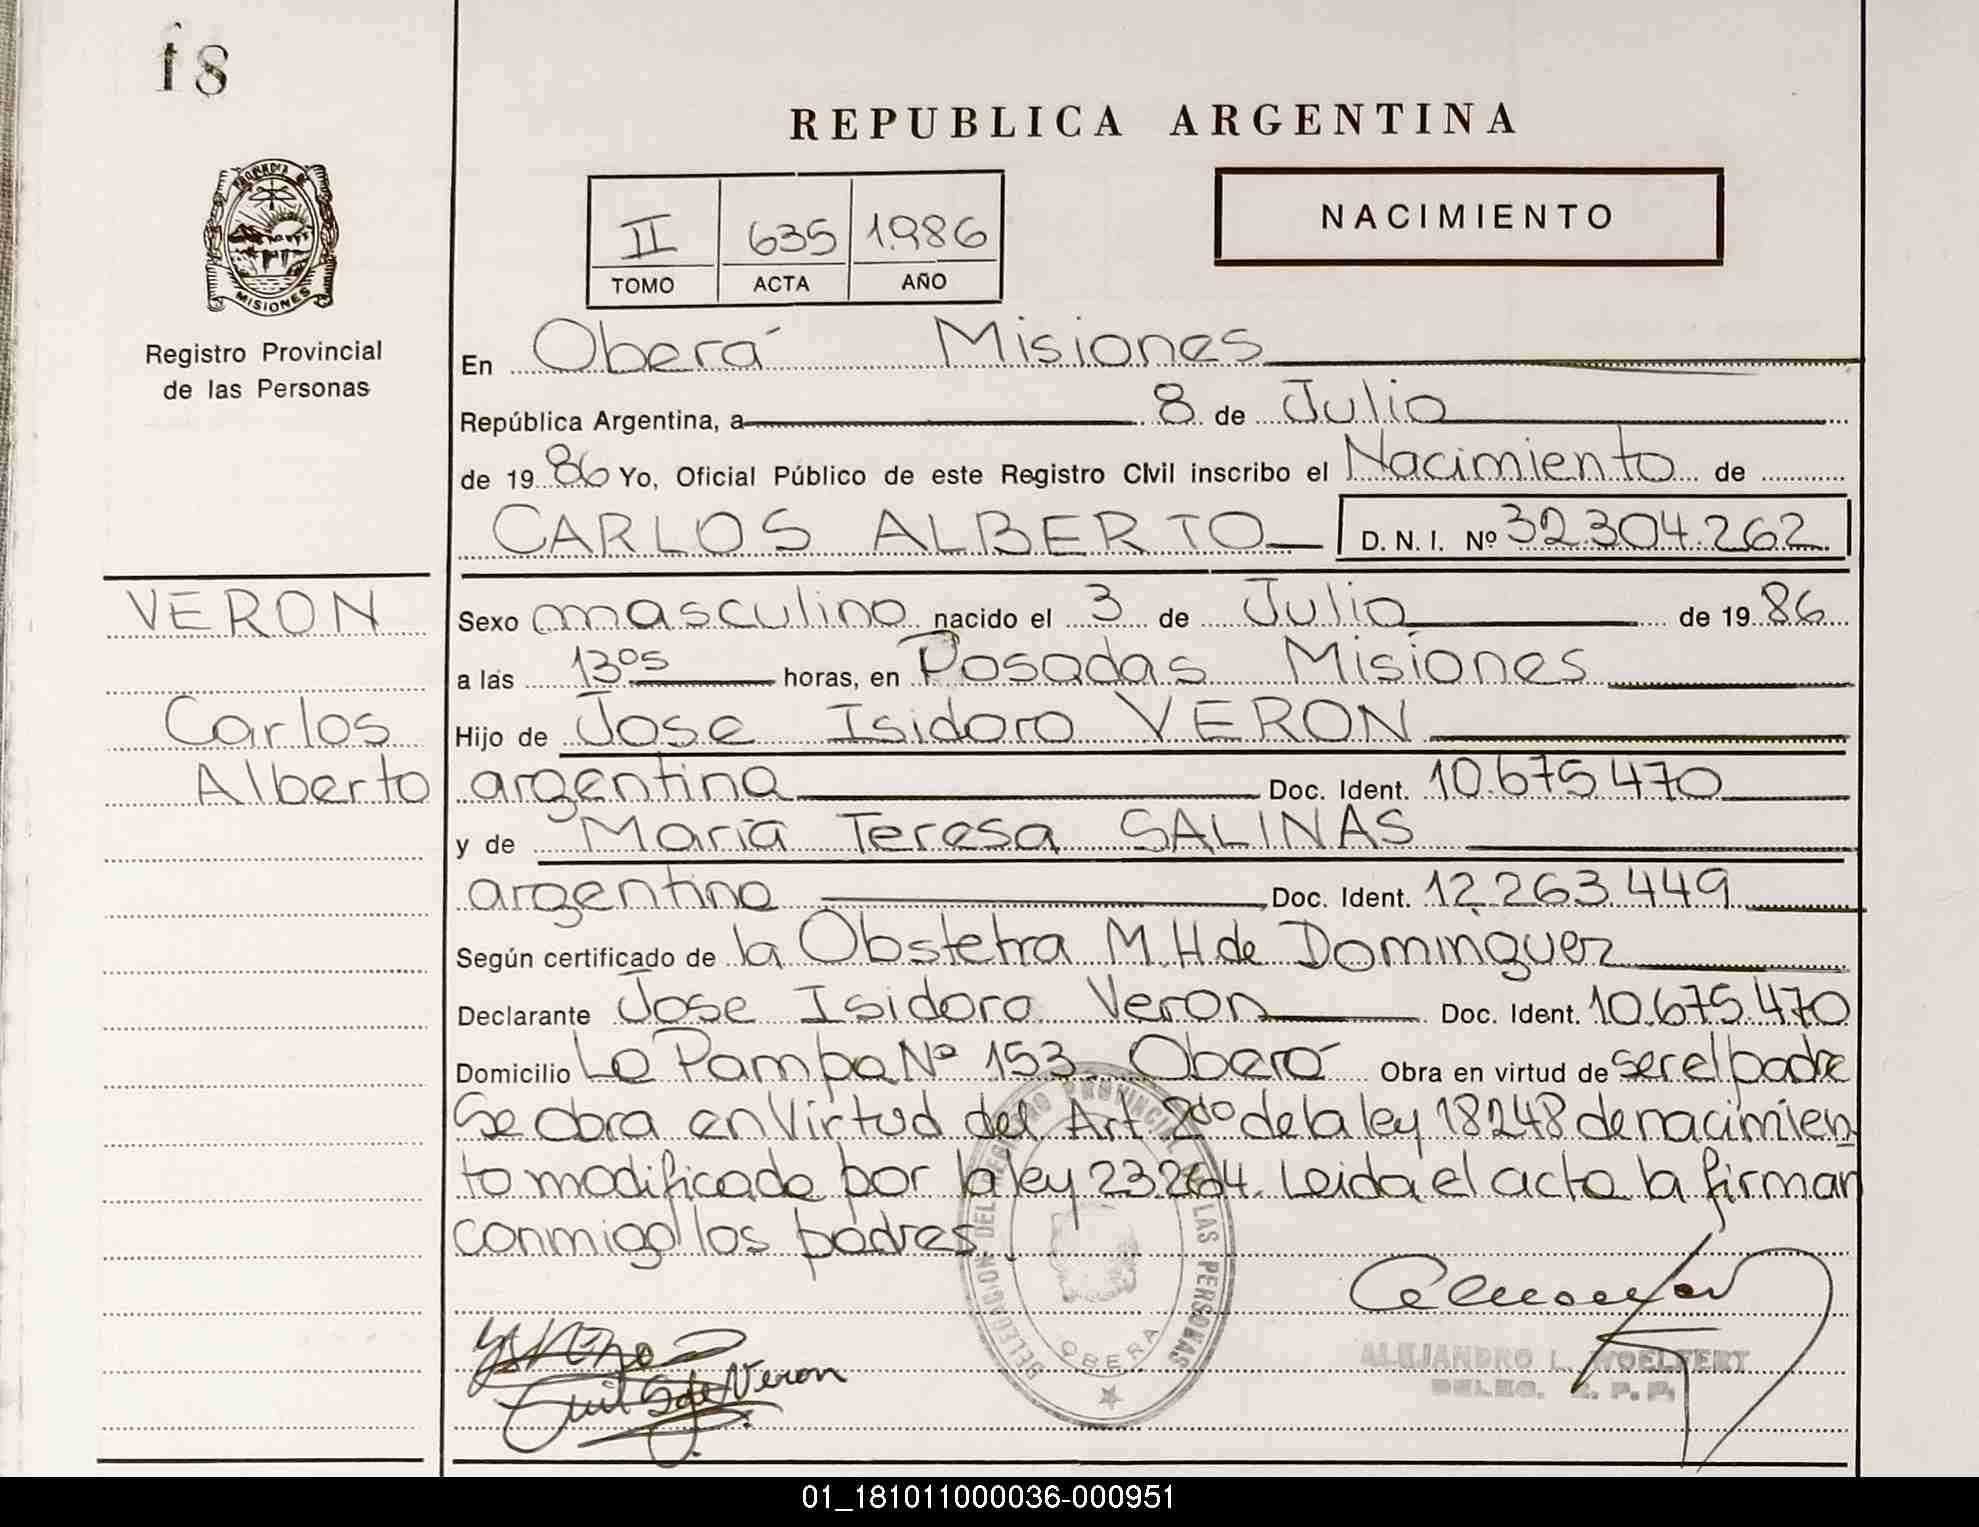 18
PROVINCIA DE
MISIONES
Registro Provincial
de las Personas
REPUBLICA ARGENTINA
II 635 1.986
TOMO ACTA AÑO
NACIMIENTO
En Oberá Misiones
República Argentina, a 8 de Julio
de 19 86 Yo, Oficial Público de este Registro Civil inscribo el Nacimiento de
CARLOS ALBERTO D. N. I. Nº 32.304.262
VERON
Carlos
Alberto
Sexo masculino nacido el 3 de Julio de 19 86
a las 13 05 horas, en Posadas Misiones
Hijo de Jose Isidoro VERON
argentina Doc. Ident. 10.675.470
y de Maria Teresa SALINAS
argentina Doc. Ident. 12.263.449
Según certificado de la Obstetra M.H de Dominguez
Declarante Jose Isidoro Veron Doc. Ident. 10.675.470
Domicilio La Pampa Nº 153 Oberá Obra en virtud de ser el padre
Se obra en Virtud del Art 2do de la ley 18248 de nacimien
to modificado por la ley 23.264. Leida el acta la firman
conmigo los padres.
DELEGACION DEL REGISTRO PROVINCIAL DE LAS PERSONAS
OBERA
de Veron
ALEJANDRO L. WOELFERT
DELEG. R. P. P.
01_181011000036-000951